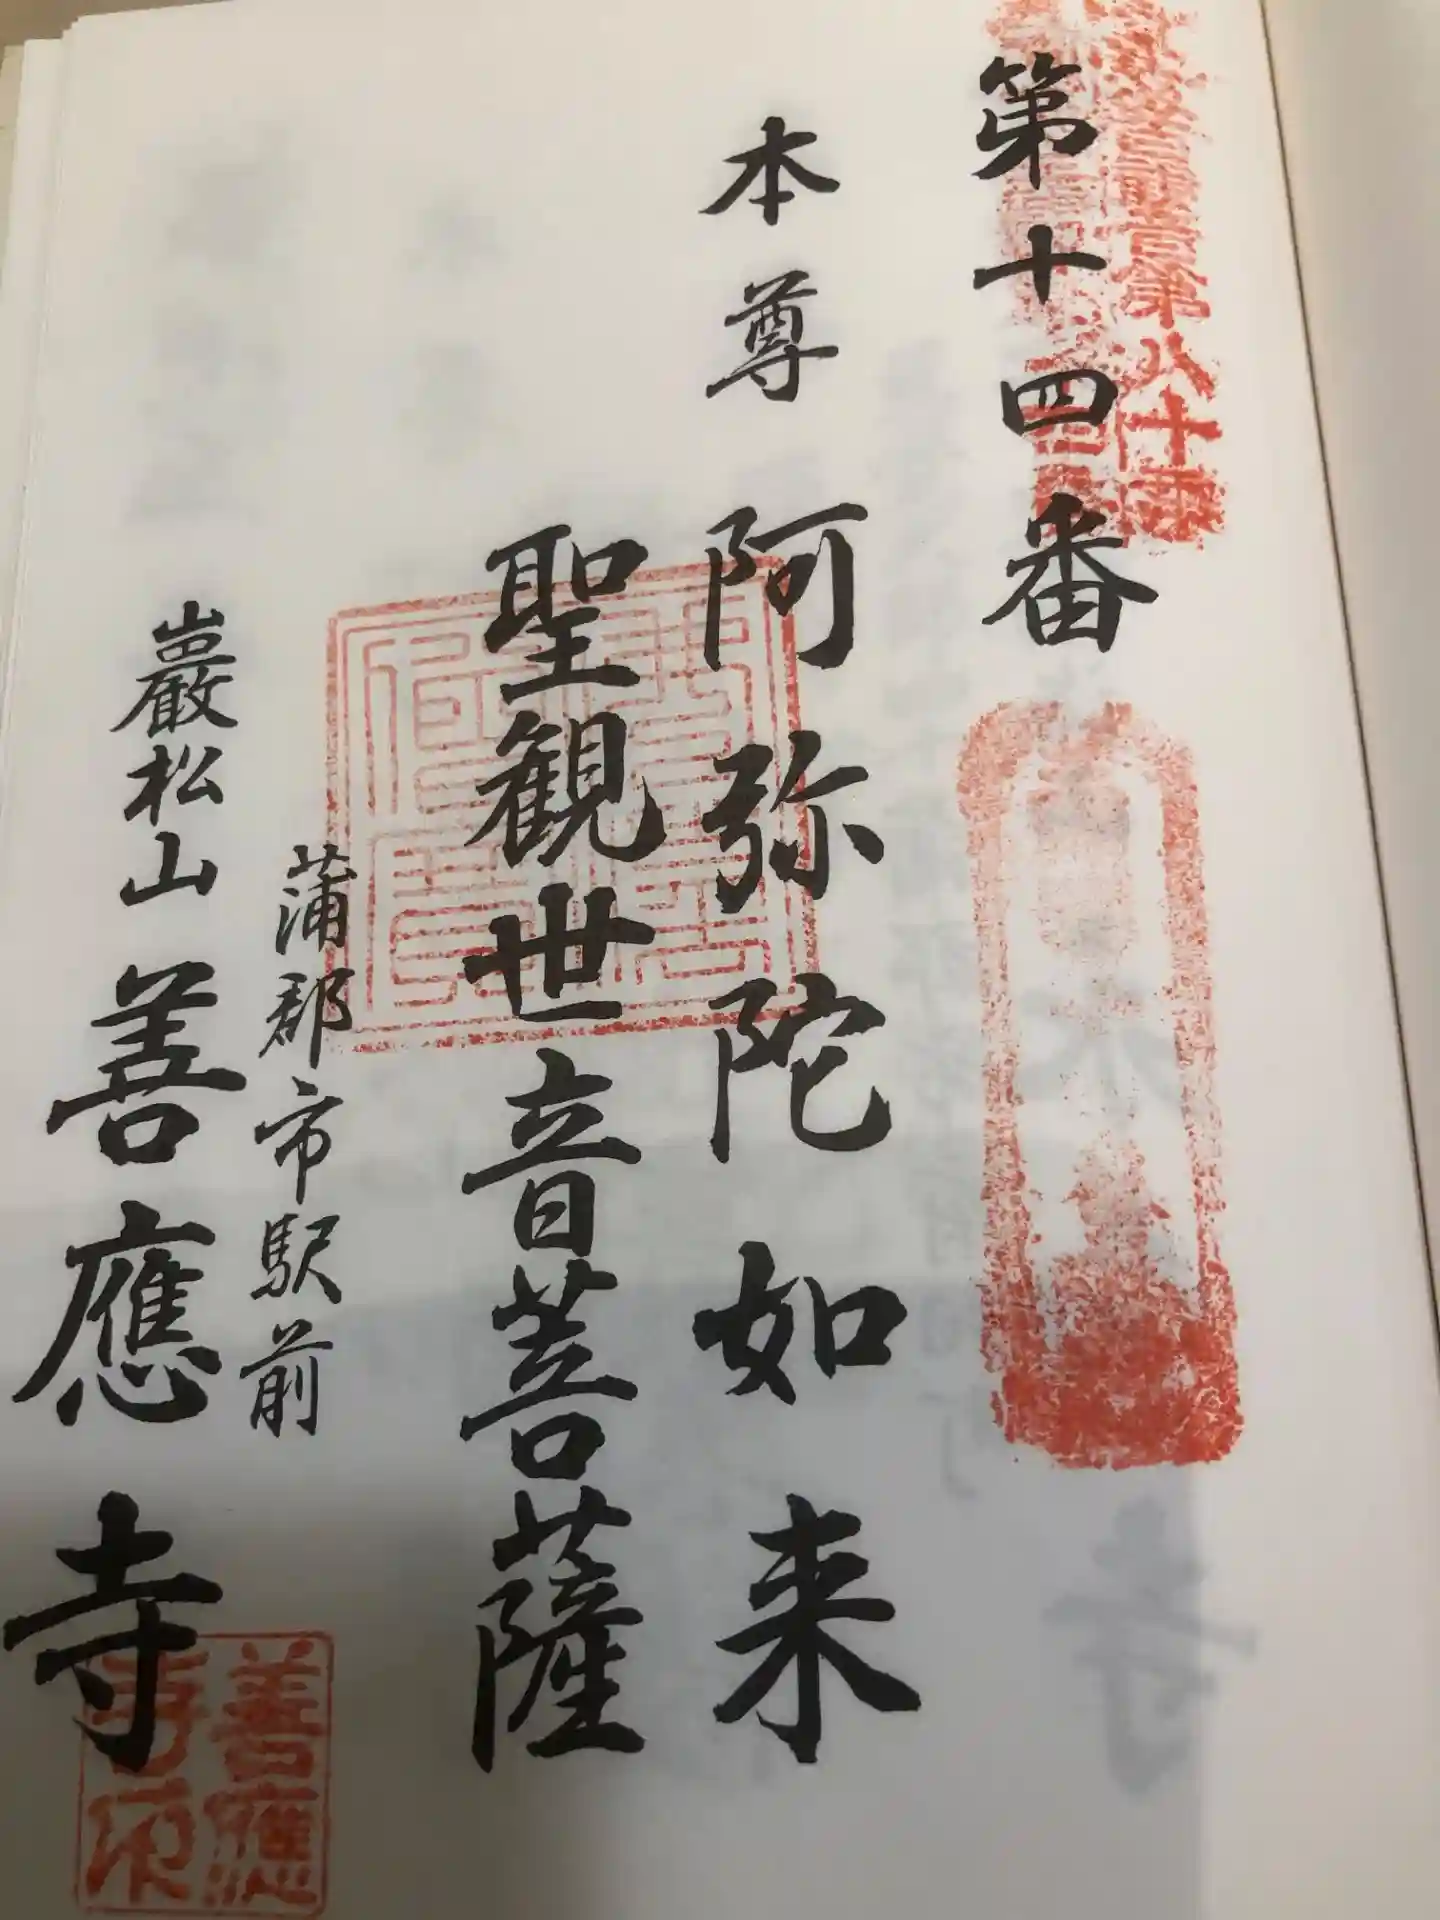 第十四番
本尊 阿弥陀如来
聖観世音菩薩
蒲郡市駅前
巖松山 善應寺
善應
寺印